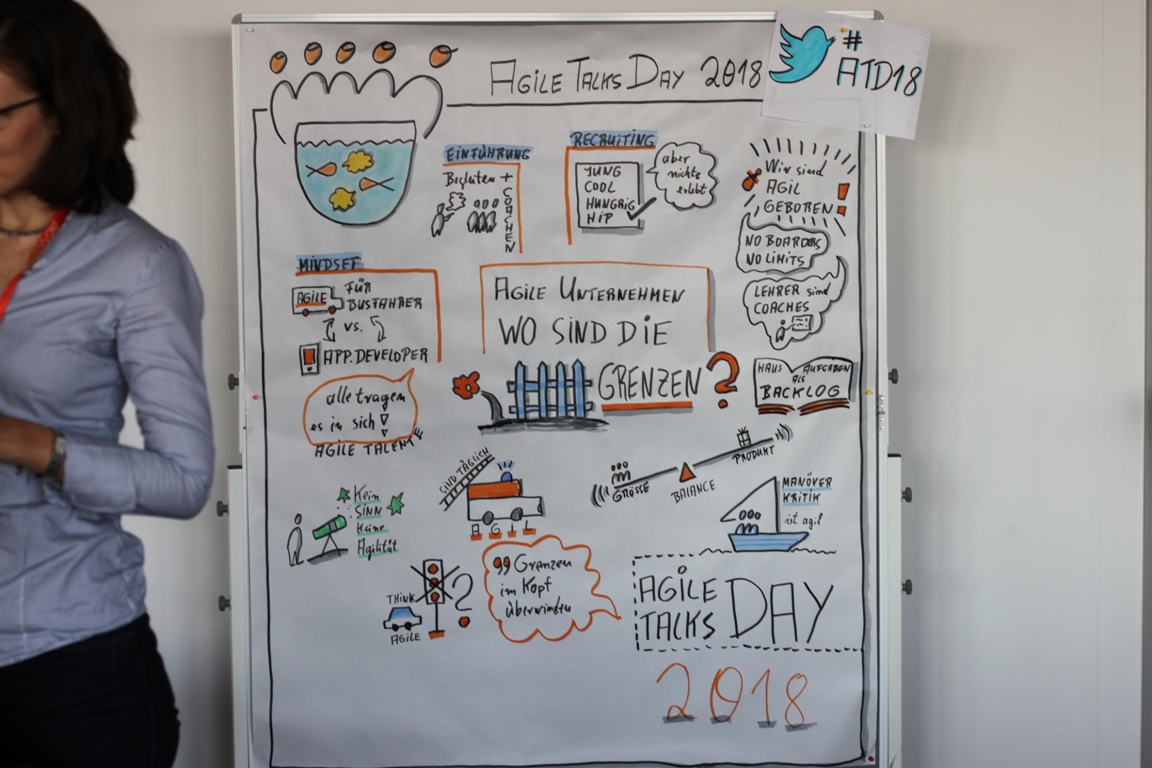 AGiLE TALKS DAY 2018
#
ATD18
EiNFÜHRUNG
Begleiten +
COACHEN
RECRUITING
JUNG
COOL
HUNGRiG
HiP
aber
nichts
erlebt
Wir sind
AGiL
GEBOREN!
NO BOARDERS
NO LiMiTS
LEHRER sind
COACHES
HAUS AUFGABEN
ALS
BACKLOG
MiNDSET
AGiLE
FÜR
BUSFAHRER
vs.
APP.DEVELOPER
alle tragen
es in sich!
AGiLE TALENTE
AGiLE UNTERNEHMEN
WO SiND DiE
GRENZEN?
SiND TÄGLiCH
AGiL
GRÖSSE
BALANCE
PRODUKT
MANÖVER
KRiTiK
ist agil
Kein
SiNN
Keine
Agilität
THiNK
AGiLE
?
„Grenzen
im Kopf
überwinden
AGiLE
TALKS DAY
2018